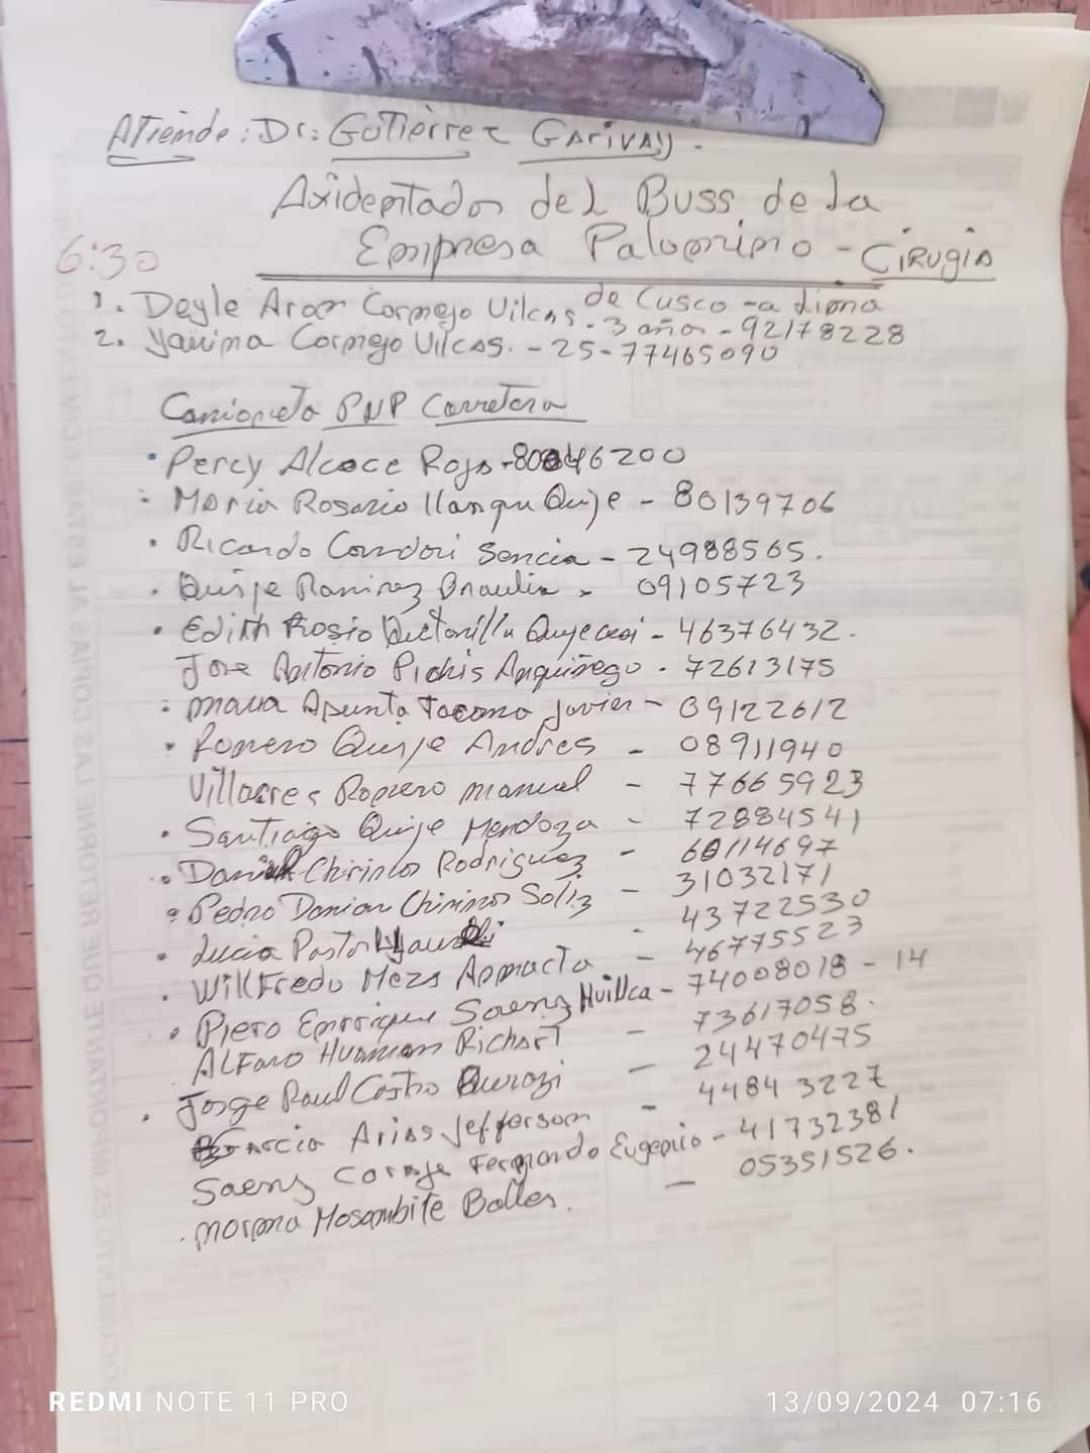 Atiende: Dr: Gutierrez Garivay.
Axidentados del Buss de la
Empresa Palomino - Cirugia
6:30
de Cusco - a Lima
1. Deyle Aron Cornejo Vilcas. 3 año - 92178228
2. Yanina Cornejo Vilcas. - 25 - 77465090
Camioneta PNP Carretera
· Percy Alcoce Rojas - 80046200
: Maria Rosario llanqu Quije - 80139706
· Ricardo Condori Sencia - 24988565.
· Quije Ramirez Braulia - 09105723
· Edith Rosio - 46376432.
Jose Antonio Pichis - 72613175
: Apunta Javier - 09122612
· Romero Quije Andres - 08911940
Villacres Romero manuel - 77665923
· Santiago Quije Mendoza - 72884541
· Daniel Chirinos Rodriguez - 60114697
· Pedro Damian Chirinos Soliz - 31032171
· Lucia Pastor - 43722530
· Wilfredo Meza - 46775523
· Piero Enrrique Saenz Huillca - 74008018 - 14
Alfaro Huaman Richart - 73617058.
· Jorge Paul Castro - 24470475
Garcia Arias Jefferson - 4484 3227
Saenz Fernando Eugenio - 41732381
. Norma Mosombite - 05351526.
DOCUMENTO ES IMPORTANTE QUE RETORNE LAS COPIAS AL
REDMI NOTE 11 PRO
13/09/2024 07:16